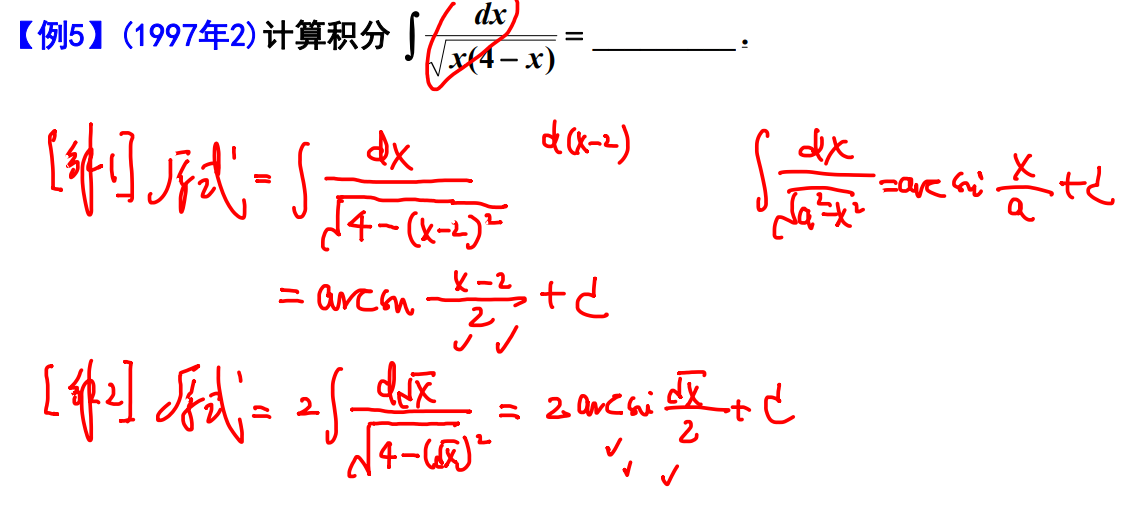 【例5】(1997年2)计算积分 ∫ dx/√(x(4−x)) = ________.
[解1] 原式 = ∫ dx/√(4−(x−2)²)  d(x−2)  ∫ dx/√(a²−x²) = arcsin x/a + C
= arcsin (x−2)/2 + C
[解2] 原式 = 2∫ d√x/√(4−(√x)²) = 2 arcsin √x/2 + C